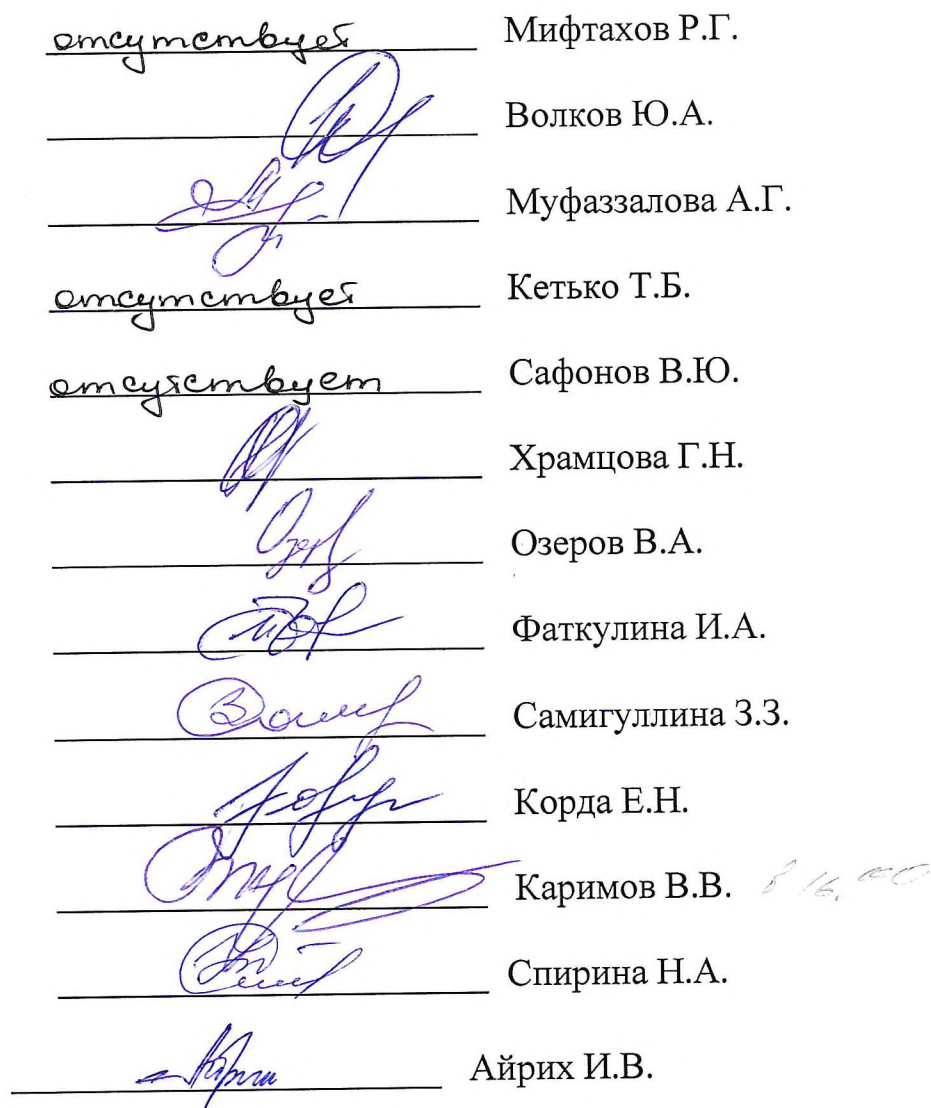 отсутствует Мифтахов Р.Г.
Волков Ю.А.
Муфаззалова А.Г.
отсутствует Кетько Т.Б.
отсутствует Сафонов В.Ю.
Храмцова Г.Н.
Озеров В.А.
Фаткулина И.А.
Самигуллина З.З.
Корда Е.Н.
Каримов В.В. в 16.00
Спирина Н.А.
Айрих И.В.